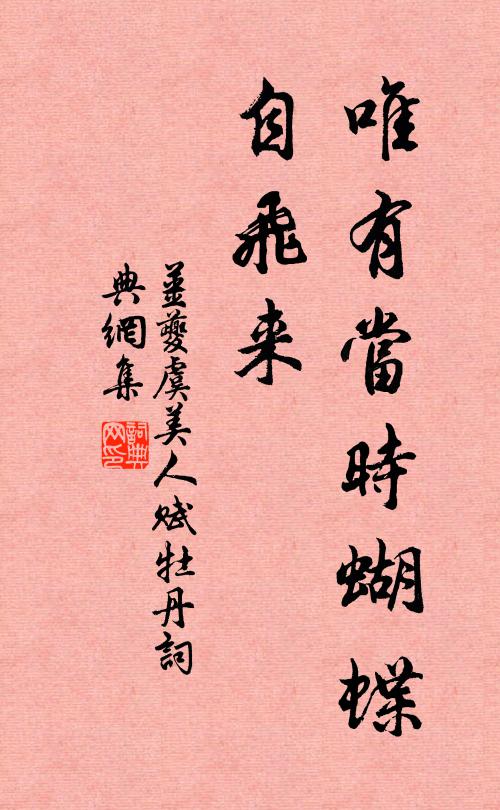 唯有當時蝴蝶
自飛来
姜夔虞美人賦牡丹詞
典網集
詞典
网印